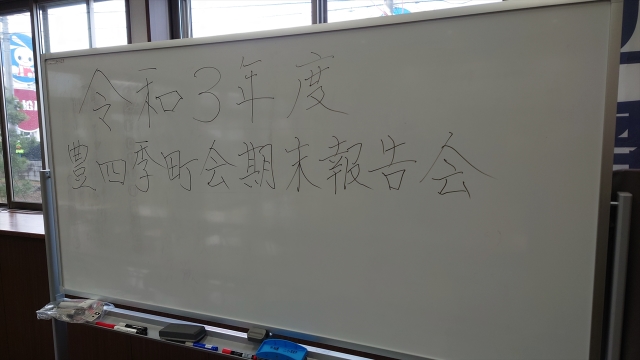 令和3年度
豊四季町会期末報告会